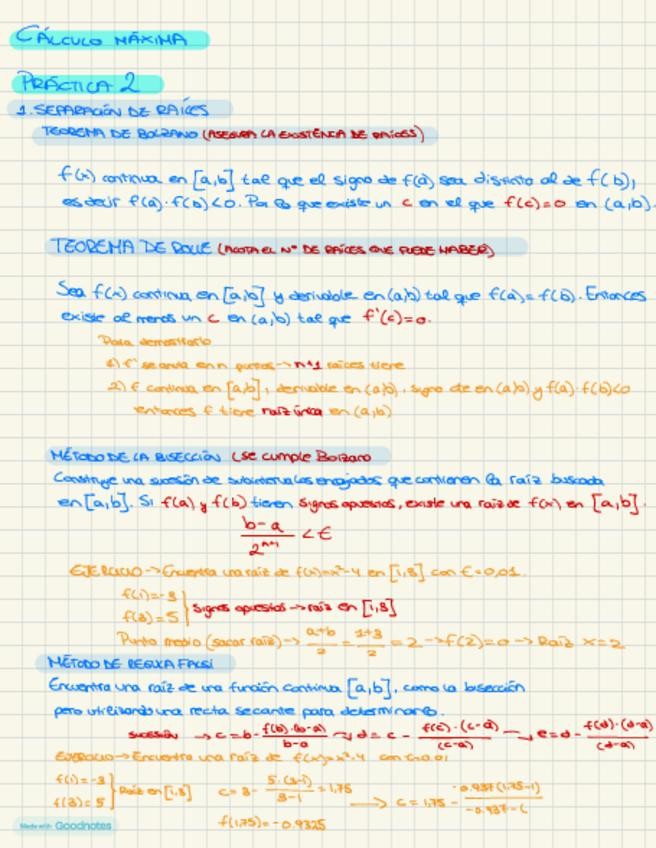 CÁLCULO MÁXIMA
PRÁCTICA 2
1. SEPARACIÓN DE RAÍCES
TEOREMA DE BOLZANO (ASEGURA LA EXISTÉNCIA DE RAÍCES)
f(x) continua en [a,b] tal que el signo de f(a) sea distinto al de f(b),
es decir f(a)·f(b)<0. Por lo que existe un c en el que f(c)=0 en (a,b).
TEOREMA DE ROLLE (ACOTA EL Nº DE RAÍCES QUE PUEDE HABER)
Sea f(x) continua en [a,b] y derivable en (a,b) tal que f(a)=f(b). Entonces
existe al menos un c en (a,b) tal que f'(c)=0.
Para demostrarlo
1) f' se anula en n puntos → n+1 raíces tiene
2) f continua en [a,b], derivable en (a,b), signo de en (a,b) y f(a)·f(b)<0
entonces f tiene raíz única en (a,b)
MÉTODO DE LA BISECCIÓN (se cumple Bolzano
Construye una sucesión de subintervalos encajados que contienen la raíz buscada
en [a,b]. Si f(a) y f(b) tienen signos opuestos, existe una raíz de f(x) en [a,b].
b-a / 2ⁿ⁺¹ < €
EJERCICIO → Encuentra una raíz de f(x)=x²-4 en [1,3] con €=0,01.
f(1)=-3
f(3)=5 } signos opuestos → raíz en [1,3]
Punto medio (sacar raíz) → a+b / 2 = 1+3 / 2 = 2 → f(2)=0 → Raíz x=2
MÉTODO DE REGULA FALSI
Encuentra una raíz de una función continua [a,b], como la bisección
pero utilizando una recta secante para determinarlo.
sucesión → c = b - f(b)·(b-a) / b-a → d = c - f(c)·(c-a) / (c-a) → e = d - f(d)·(d-a) / (d-a)
EJERCICIO → Encuentra una raíz de f(x)=x²-4 con €=0.01
f(1)=-3
f(3)=5 } Raíz en [1,3] c = 3 - 5·(3-1) / 3-1 = 1,75 → c = 1,75 - -0.937(1,75-1)
f(1,75)=-0.9325
Made with Goodnotes